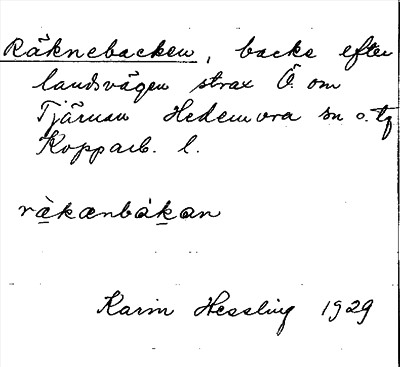 Räknebacken, backe efter
landsvägen strax Ö. om
Tjärnan Hedemora sn o. tg
Kopparb. l.
ràkænbákan
Karin Hessling 1929